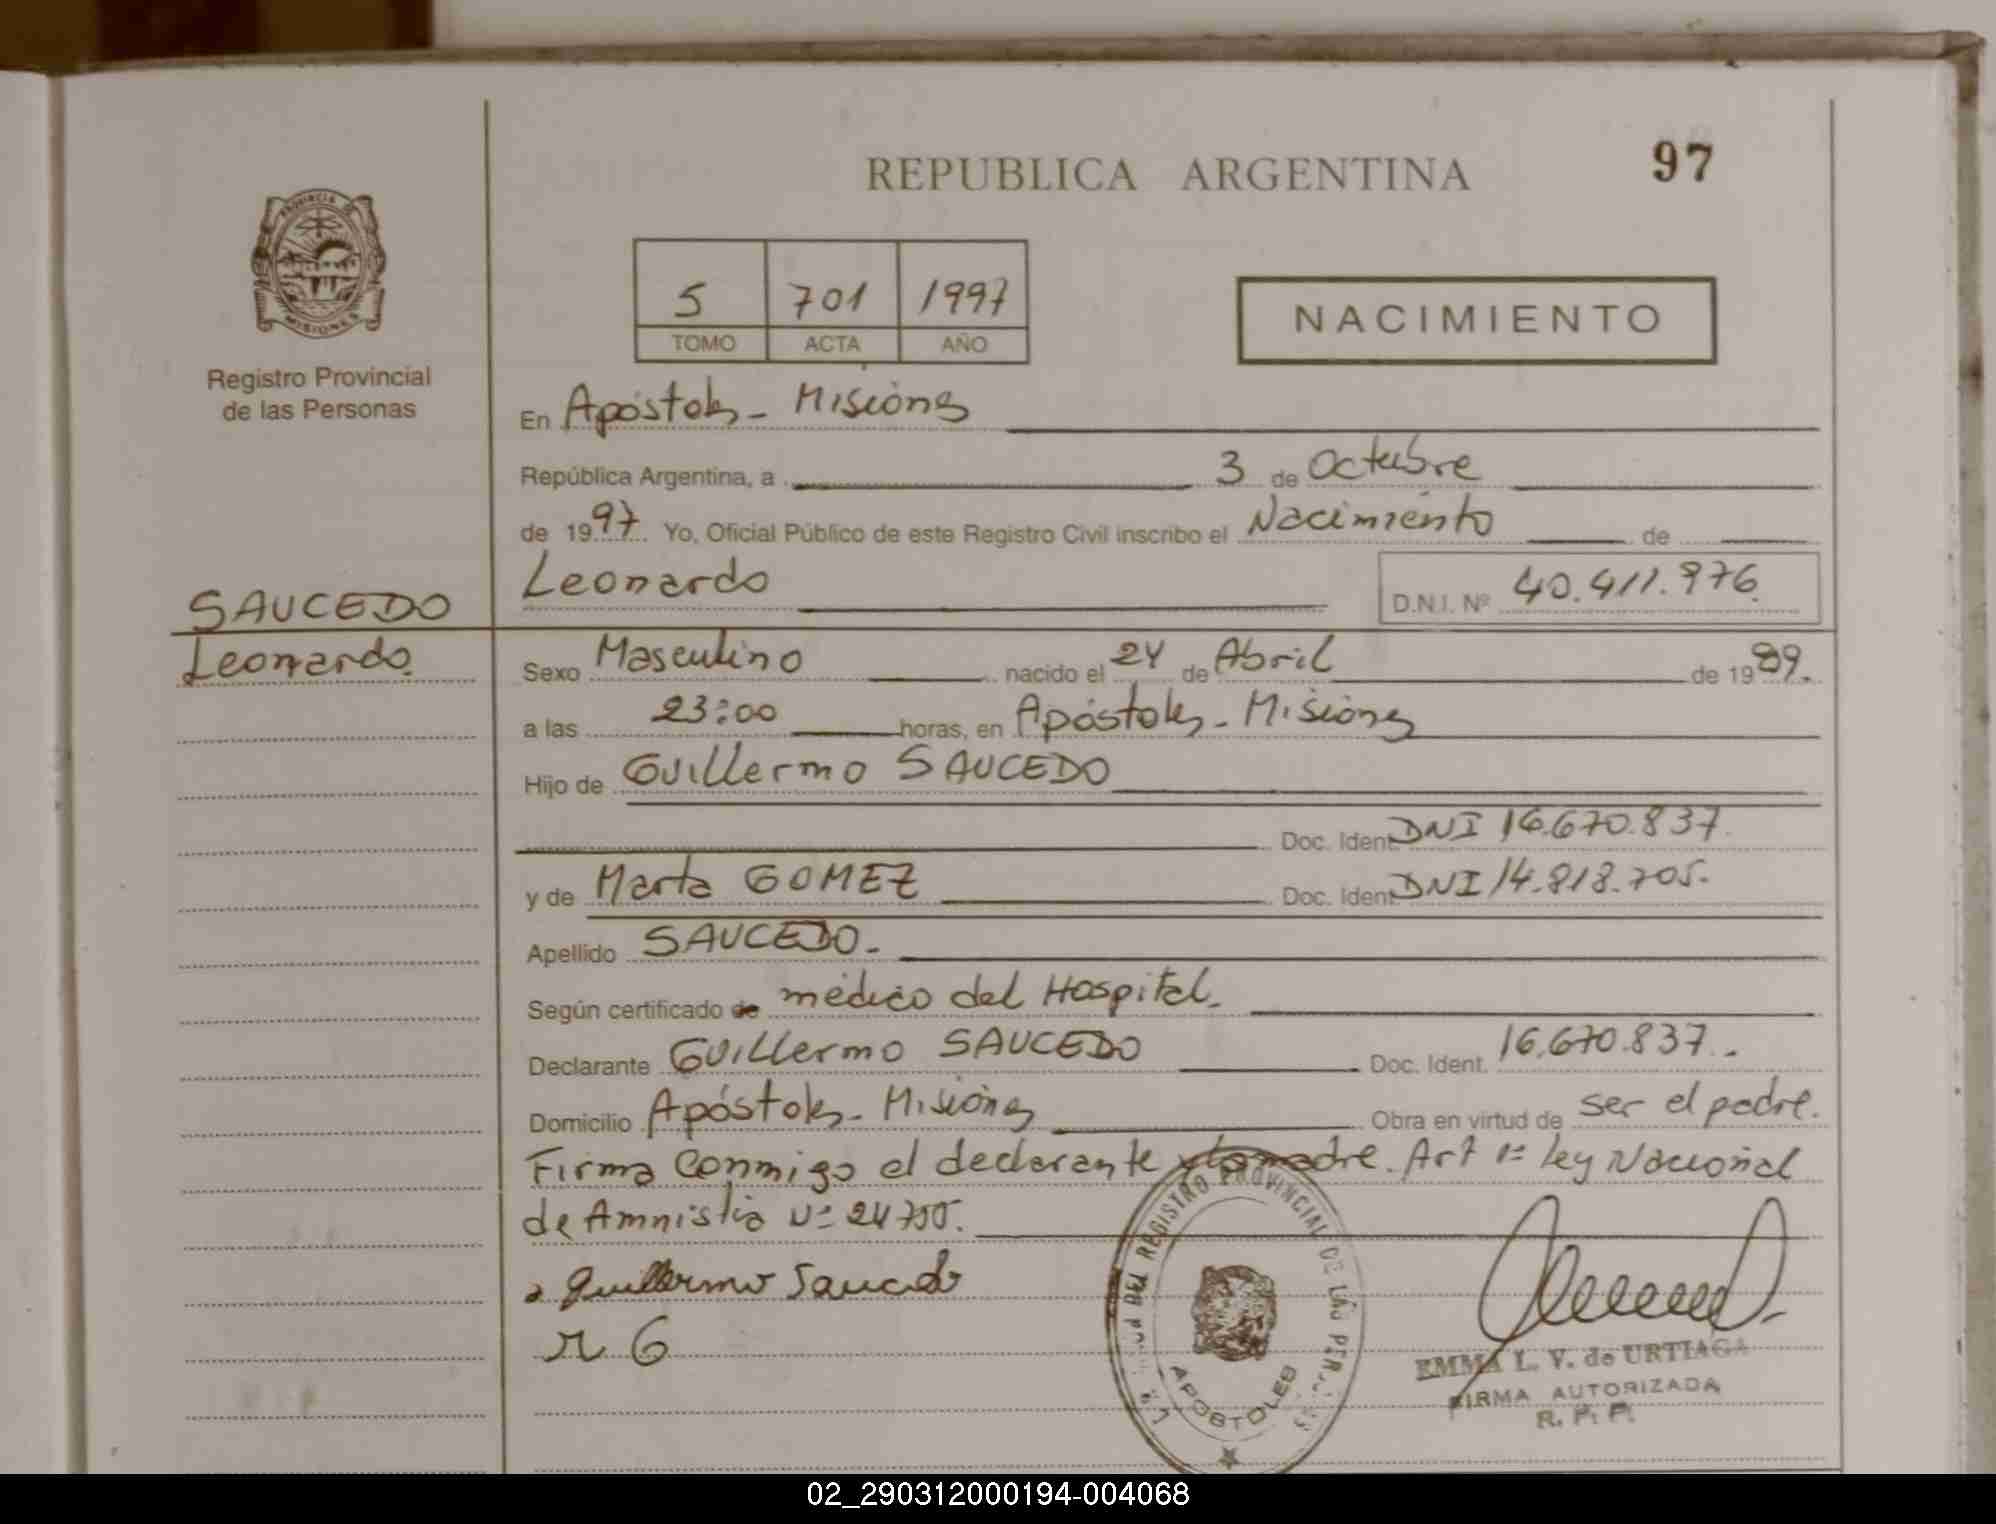 REPUBLICA ARGENTINA
97
PROVINCIA DE
MISIONES
Registro Provincial
de las Personas
5 701 1997
TOMO ACTA AÑO
NACIMIENTO
En Apóstoles - Misiones
República Argentina, a 3 de Octubre
de 1997. Yo, Oficial Público de este Registro Civil inscribo el Nacimiento de
Leonardo D.N.I. Nº 40.411.976
SAUCEDO
Leonardo.
Sexo Masculino nacido el 24 de Abril de 1989.
a las 23:00 horas, en Apóstoles - Misiones
Hijo de Guillermo SAUCEDO
Doc. Ident. DNI 16.670.837.
y de Marta GOMEZ Doc. Ident. DNI 14.818.705.
Apellido SAUCEDO.
Según certificado de médico del Hospital.
Declarante Guillermo SAUCEDO Doc. Ident. 16.670.837.
Domicilio Apóstoles - Misiones Obra en virtud de ser el padre.
Firma conmigo el declarante y la madre. Art 1º Ley Nacional
de Amnistia Nº 24755.
Guillermo Saucedo
M G
DEL REGISTRO PROVINCIAL DE LAS PERSONAS
APOSTOLES
EMMA L. V. de URTIAGA
FIRMA AUTORIZADA
R. P. P.
02_290312000194-004068